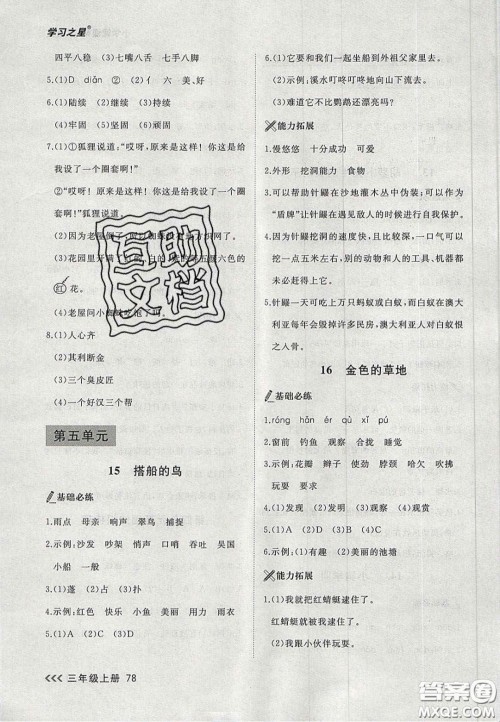 学习之星®
四平八稳 (3)七嘴八舌 七手八脚
5.(1)D diǎn (2)② 六 美、好
6.(1)陆续 (2)继续 (3)持续
(4)牢固 (5)坚固 (6)顽固
7.(1)①狐狸说道,“哎呀,原来是这样!你这是给
我设了一个圈套啊!”
②“哎呀,原来是这样!你这是给我设了一个圈
套啊!”狐狸说道。
(2)因为老屋
(3)花园里开
红花。
(4)老屋问小
8.(1)人心齐
(2)其利断金
(3)三个臭皮匠
(4)一个好汉三个帮
互助文档
第五单元
15 搭船的鸟
基础必练
1.雨点 母亲 响声 翠鸟 捕捉
2.示例:沙发 吵架 俏佳 口哨 吞吐 吴国
小船 一般
3.(1)蓬 (2)占 (3)扑
4.示例:红色 快乐 小鱼 美丽 用力 雨衣
5.(1)A (2)C (3)B (4)D
三年级上册 78
6.(1)它和我们一起坐船到外祖父家里去。
(2)示例:溪水叮咚叮咚地向东流去。
(3)难道它不比鹦鹉还漂亮吗?
能力拓展
1.慢悠悠 十分成功 可爱
2.外形 挖洞能力 食物
3.可以帮助针鼹在沙地灌木丛中伪装;可以作为
“盾牌”让针鼹在遇见敌人的时候自我保护。
4.因为针鼹挖洞的速度快,且力量大,一口气可以
挖一点五米左右,别的动物和人甚至机器的挖
洞本领都赶不上它。
5.针鼹一天可吃上万只蚂蚁或白蚁,而白蚁在澳大
利亚每年会毁掉许多民房,澳大利亚人对白蚁恨
之入骨。
16 金色的草地
基础必练
1.róng hān ér qù xī pú
2.窗前 钓鱼 观察 合拢 睡觉
3.示例:花瓣 辫子 使劲 脖颈 哈欠 吹拂
玩耍 要求
4.(1)发现 (2)发明 (3)观察 (4)观赏
5.(1)A (2)D (3)C
6.示例:(1)有趣 (2)美丽的池塘
能力拓展
1.(1)我就把红蜻蜓逮住了。
(2)红蜻蜓就被我逮住了。
2.我跟小伙伴玩耍。
答案圈
MXQE.COM